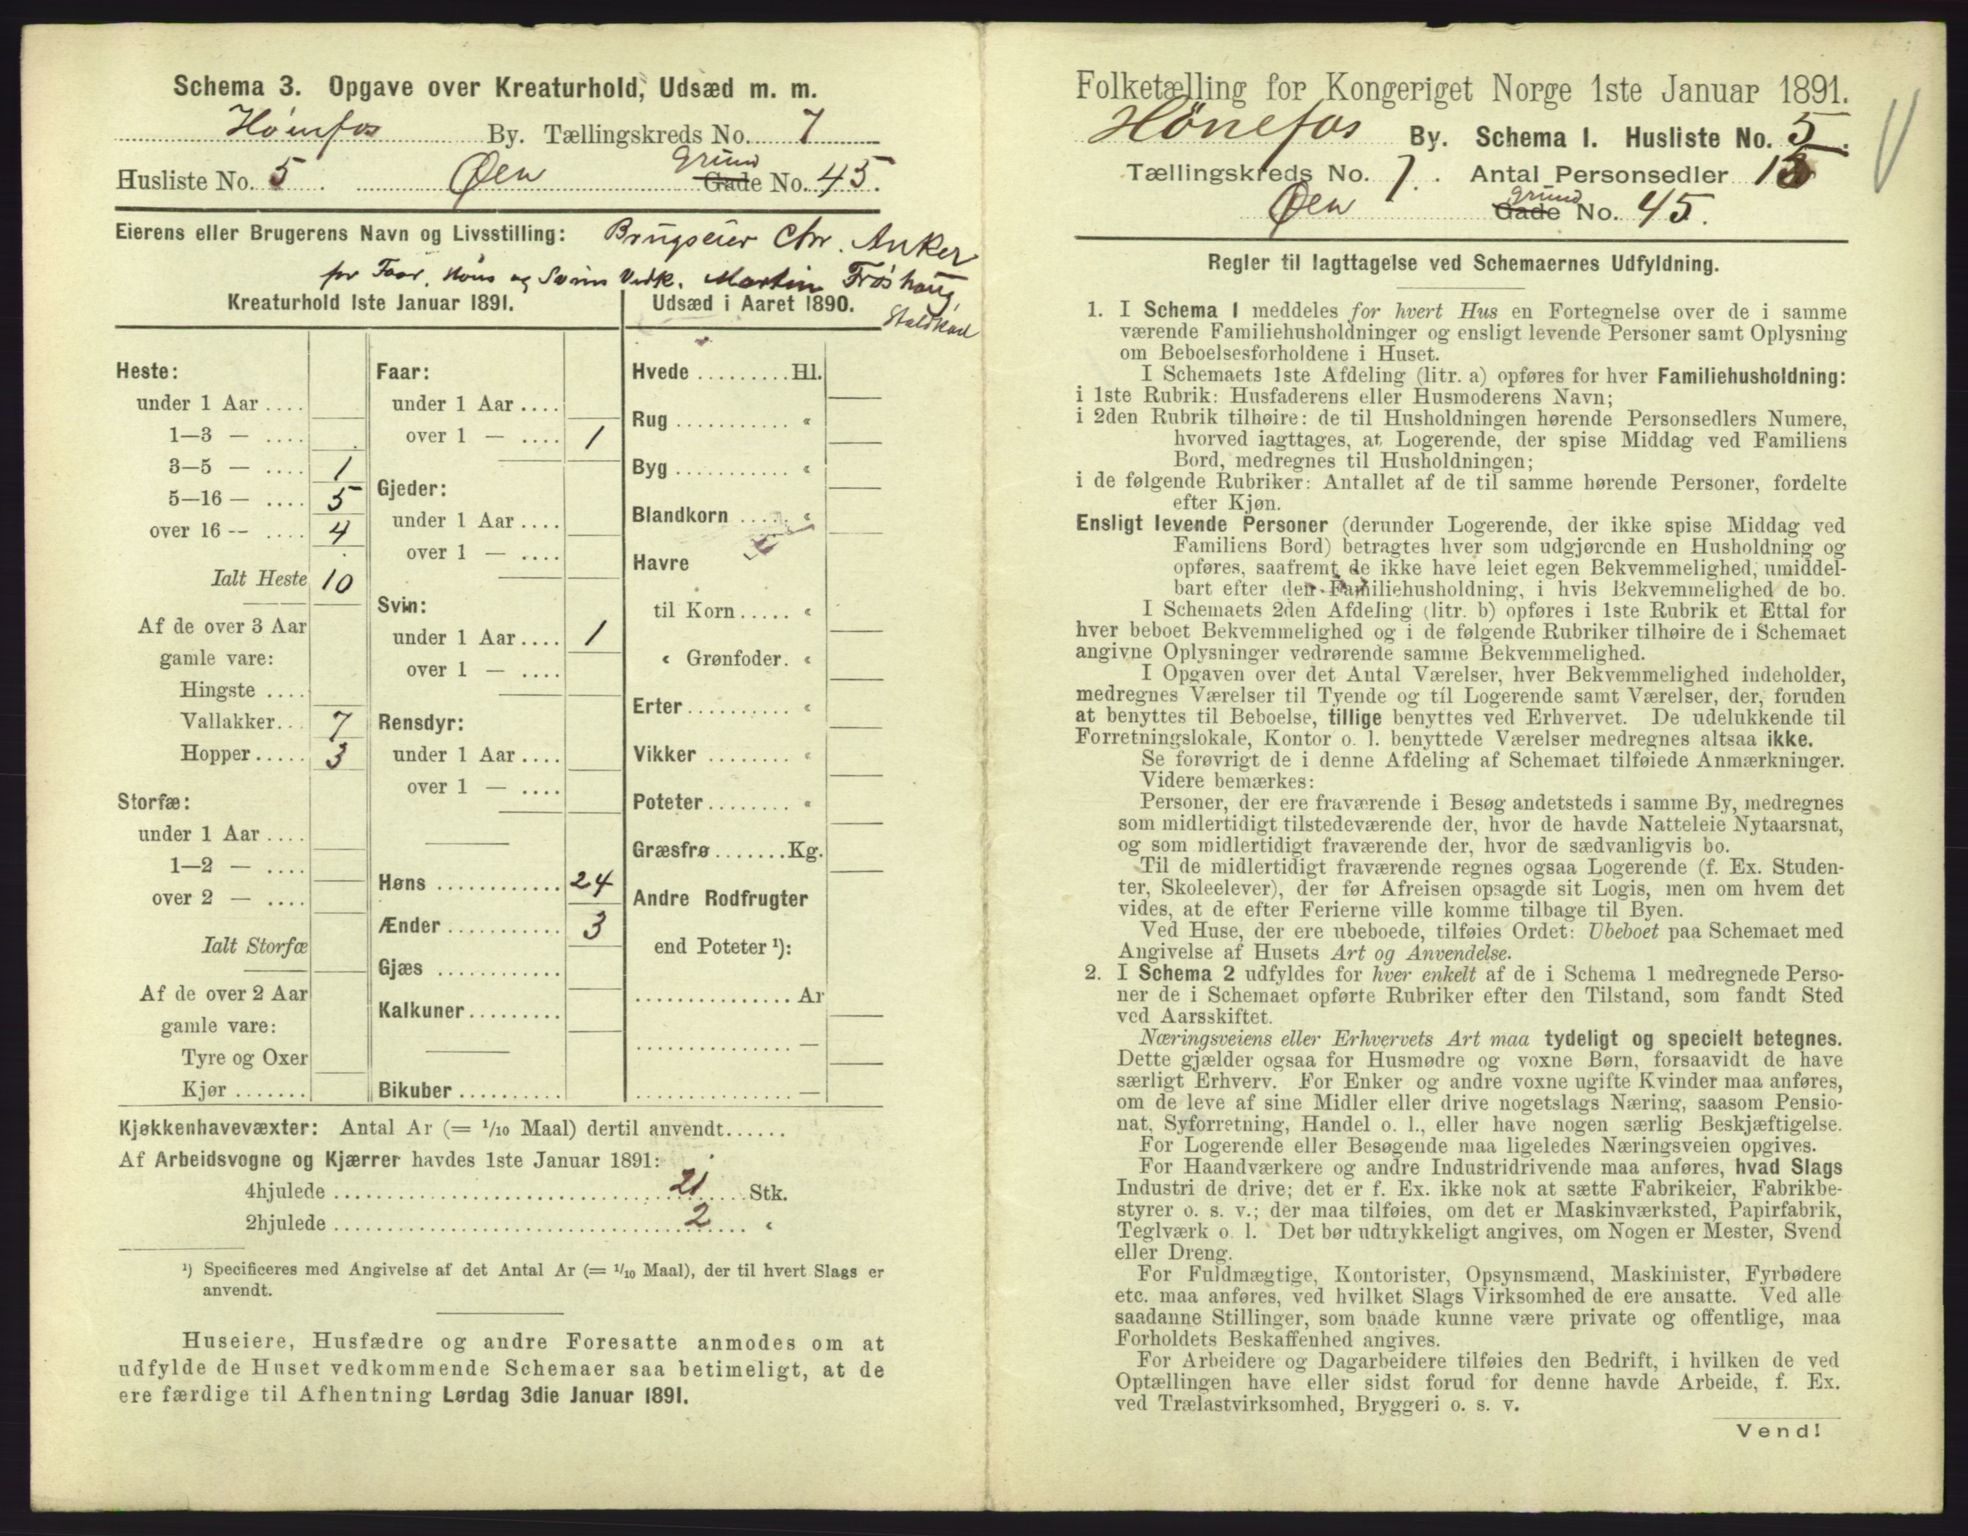 Schema 3. Opgave over Kreaturhold, Udsæd m. m.
Hönefos By. Tællingskreds No. 7
Husliste No. 5. Øen Gade grund No. 45.
Eierens eller Brugerens Navn og Livsstilling: Brugseier Chr. Anker
for Faar, Höns og Sviin Vedk. Martin Fröshaug,
Staldkarl
Kreaturhold 1ste Januar 1891.
Heste:
under 1 Aar ....
1—3 — ....
3—5 — .... 1
5—16 — .... 5
over 16 — .... 4
Ialt Heste 10
Af de over 3 Aar
gamle vare:
Hingste ....
Vallakker... 7
Hopper..... 3
Storfæ:
under 1 Aar ....
1—2 — ....
over 2 — ....
Ialt Storfæ
Af de over 2 Aar
gamle vare:
Tyre og Oxer
Kjør .......
Faar:
under 1 Aar ....
over 1 — .... 1
Gjeder:
under 1 Aar ....
over 1 — ....
Svin:
under 1 Aar .... 1
over 1 — ....
Rensdyr:
under 1 Aar ....
over 1 — ....
Høns ............ 24
Ænder ........... 3
Gjæs ............
Kalkuner.........
Bikuber ..........
Udsæd i Aaret 1890.
Hvede .........Hl.
Rug ........... «
Byg ........... «
Blandkorn .... «
Havre
til Korn ..... «
« Grønfoder. «
Erter.......... «
Vikker ........ «
Poteter ........ «
Græsfrø .......Kg.
Andre Rodfrugter
end Poteter ¹):
............... Ar
............... —
............... —
Kjøkkenhavevæxter: Antal Ar (= 1/10 Maal) dertil anvendt......
Af Arbeidsvogne og Kjærrer havdes 1ste Januar 1891:
4hjulede ........ 21 ..... Stk.
2hjulede ........ 2 ..... «
¹) Specificeres med Angivelse af det Antal Ar (= 1/10 Maal), der til hvert Slags er
anvendt.
Huseiere, Husfædre og andre Foresatte anmodes om at
udfylde de Huset vedkommende Schemaer saa betimeligt, at de
ere færdige til Afhentning Lørdag 3die Januar 1891.
Folketælling for Kongeriget Norge 1ste Januar 1891.
Hönefos By. Schema 1. Husliste No. 5.
Tællingskreds No. 7. Antal Personsedler 15
Øen Gade grund No. 45.
Regler til Iagttagelse ved Schemaernes Udfyldning.
1. I Schema 1 meddeles for hvert Hus en Fortegnelse over de i samme
værende Familiehusholdninger og ensligt levende Personer samt Oplysning
om Beboelsesforholdene i Huset.
I Schemaets 1ste Afdeling (litr. a) opføres for hver Familiehusholdning:
i 1ste Rubrik: Husfaderens eller Husmoderens Navn;
i 2den Rubrik tilhøire: de til Husholdningen hørende Personsedlers Numere,
hvorved iagttages, at Logerende, der spise Middag ved Familiens
Bord, medregnes til Husholdningen;
i de følgende Rubriker: Antallet af de til samme hørende Personer, fordelte
efter Kjøn.
Ensligt levende Personer (derunder Logerende, der ikke spise Middag ved
Familiens Bord) betragtes hver som udgjørende en Husholdning og
opføres, saafremt de ikke have leiet egen Bekvemmelighed, umiddel-
bart efter den Familiehusholdning, i hvis Bekvemmelighed de bo.
I Schemaets 2den Afdeling (litr. b) opføres i 1ste Rubrik et Ettal for
hver beboet Bekvemmelighed og i de følgende Rubriker tilhøire de i Schemaet
angivne Oplysninger vedrørende samme Bekvemmelighed.
I Opgaven over det Antal Værelser, hver Bekvemmelighed indeholder,
medregnes Værelser til Tyende og til Logerende samt Værelser, der, foruden
at benyttes til Beboelse, tillige benyttes ved Erhvervet. De udelukkende til
Forretningslokale, Kontor o. l. benyttede Værelser medregnes altsaa ikke.
Se forøvrigt de i denne Afdeling af Schemaet tilføiede Anmærkninger.
Videre bemærkes:
Personer, der ere fraværende i Besøg andetsteds i samme By, medregnes
som midlertidigt tilstedeværende der, hvor de havde Natteleie Nytaarsnat,
og som midlertidigt fraværende der, hvor de sædvanligvis bo.
Til de midlertidigt fraværende regnes ogsaa Logerende (f. Ex. Studen-
ter, Skoleelever), der før Afreisen opsagde sit Logis, men om hvem det
vides, at de efter Ferierne ville komme tilbage til Byen.
Ved Huse, der ere ubeboede, tilføies Ordet: Ubeboet paa Schemaet med
Angivelse af Husets Art og Anvendelse.
2. I Schema 2 udfyldes for hver enkelt af de i Schema 1 medregnede Perso-
ner de i Schemaet opførte Rubriker efter den Tilstand, som fandt Sted
ved Aarsskiftet.
Næringsveiens eller Erhvervets Art maa tydeligt og specielt betegnes.
Dette gjælder ogsaa for Husmødre og voxne Børn, forsaavidt de have
særligt Erhverv. For Enker og andre voxne ugifte Kvinder maa anføres,
om de leve af sine Midler eller drive nogetslags Næring, saasom Pensio-
nat, Syforretning, Handel o. l., eller have nogen særlig Beskjæftigelse.
For Logerende eller Besøgende maa ligeledes Næringsveien opgives.
For Haandværkere og andre Industridrivende maa anføres, hvad Slags
Industri de drive; det er f. Ex. ikke nok at sætte Fabrikeier, Fabrikbe-
styrer o. s. v.; der maa tilføies, om det er Maskinværksted, Papirfabrik,
Teglværk o. l. Det bør udtrykkeligt angives, om Nogen er Mester, Svend
eller Dreng.
For Fuldmægtige, Kontorister, Opsynsmænd, Maskinister, Fyrbødere
etc. maa anføres, ved hvilket Slags Virksomhed de ere ansatte. Ved alle
saadanne Stillinger, som baade kunne være private og offentlige, maa
Forholdets Beskaffenhed angives.
For Arbeidere og Dagarbeidere tilføies den Bedrift, i hvilken de ved
Optællingen have eller sidst forud for denne havde Arbeide, f. Ex.
ved Trælastvirksomhed, Bryggeri o. s. v.
Vend!